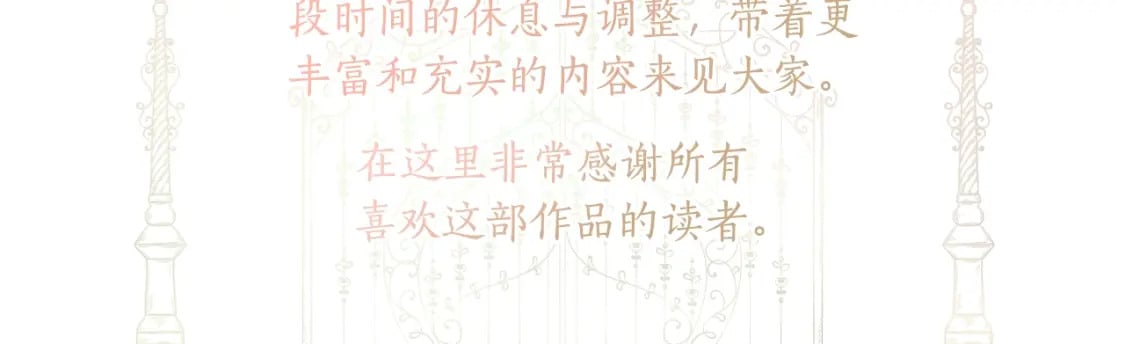 段时间的休息与调整，带着更
丰富和充实的内容来见大家。
在这里非常感谢所有
喜欢这部作品的读者。